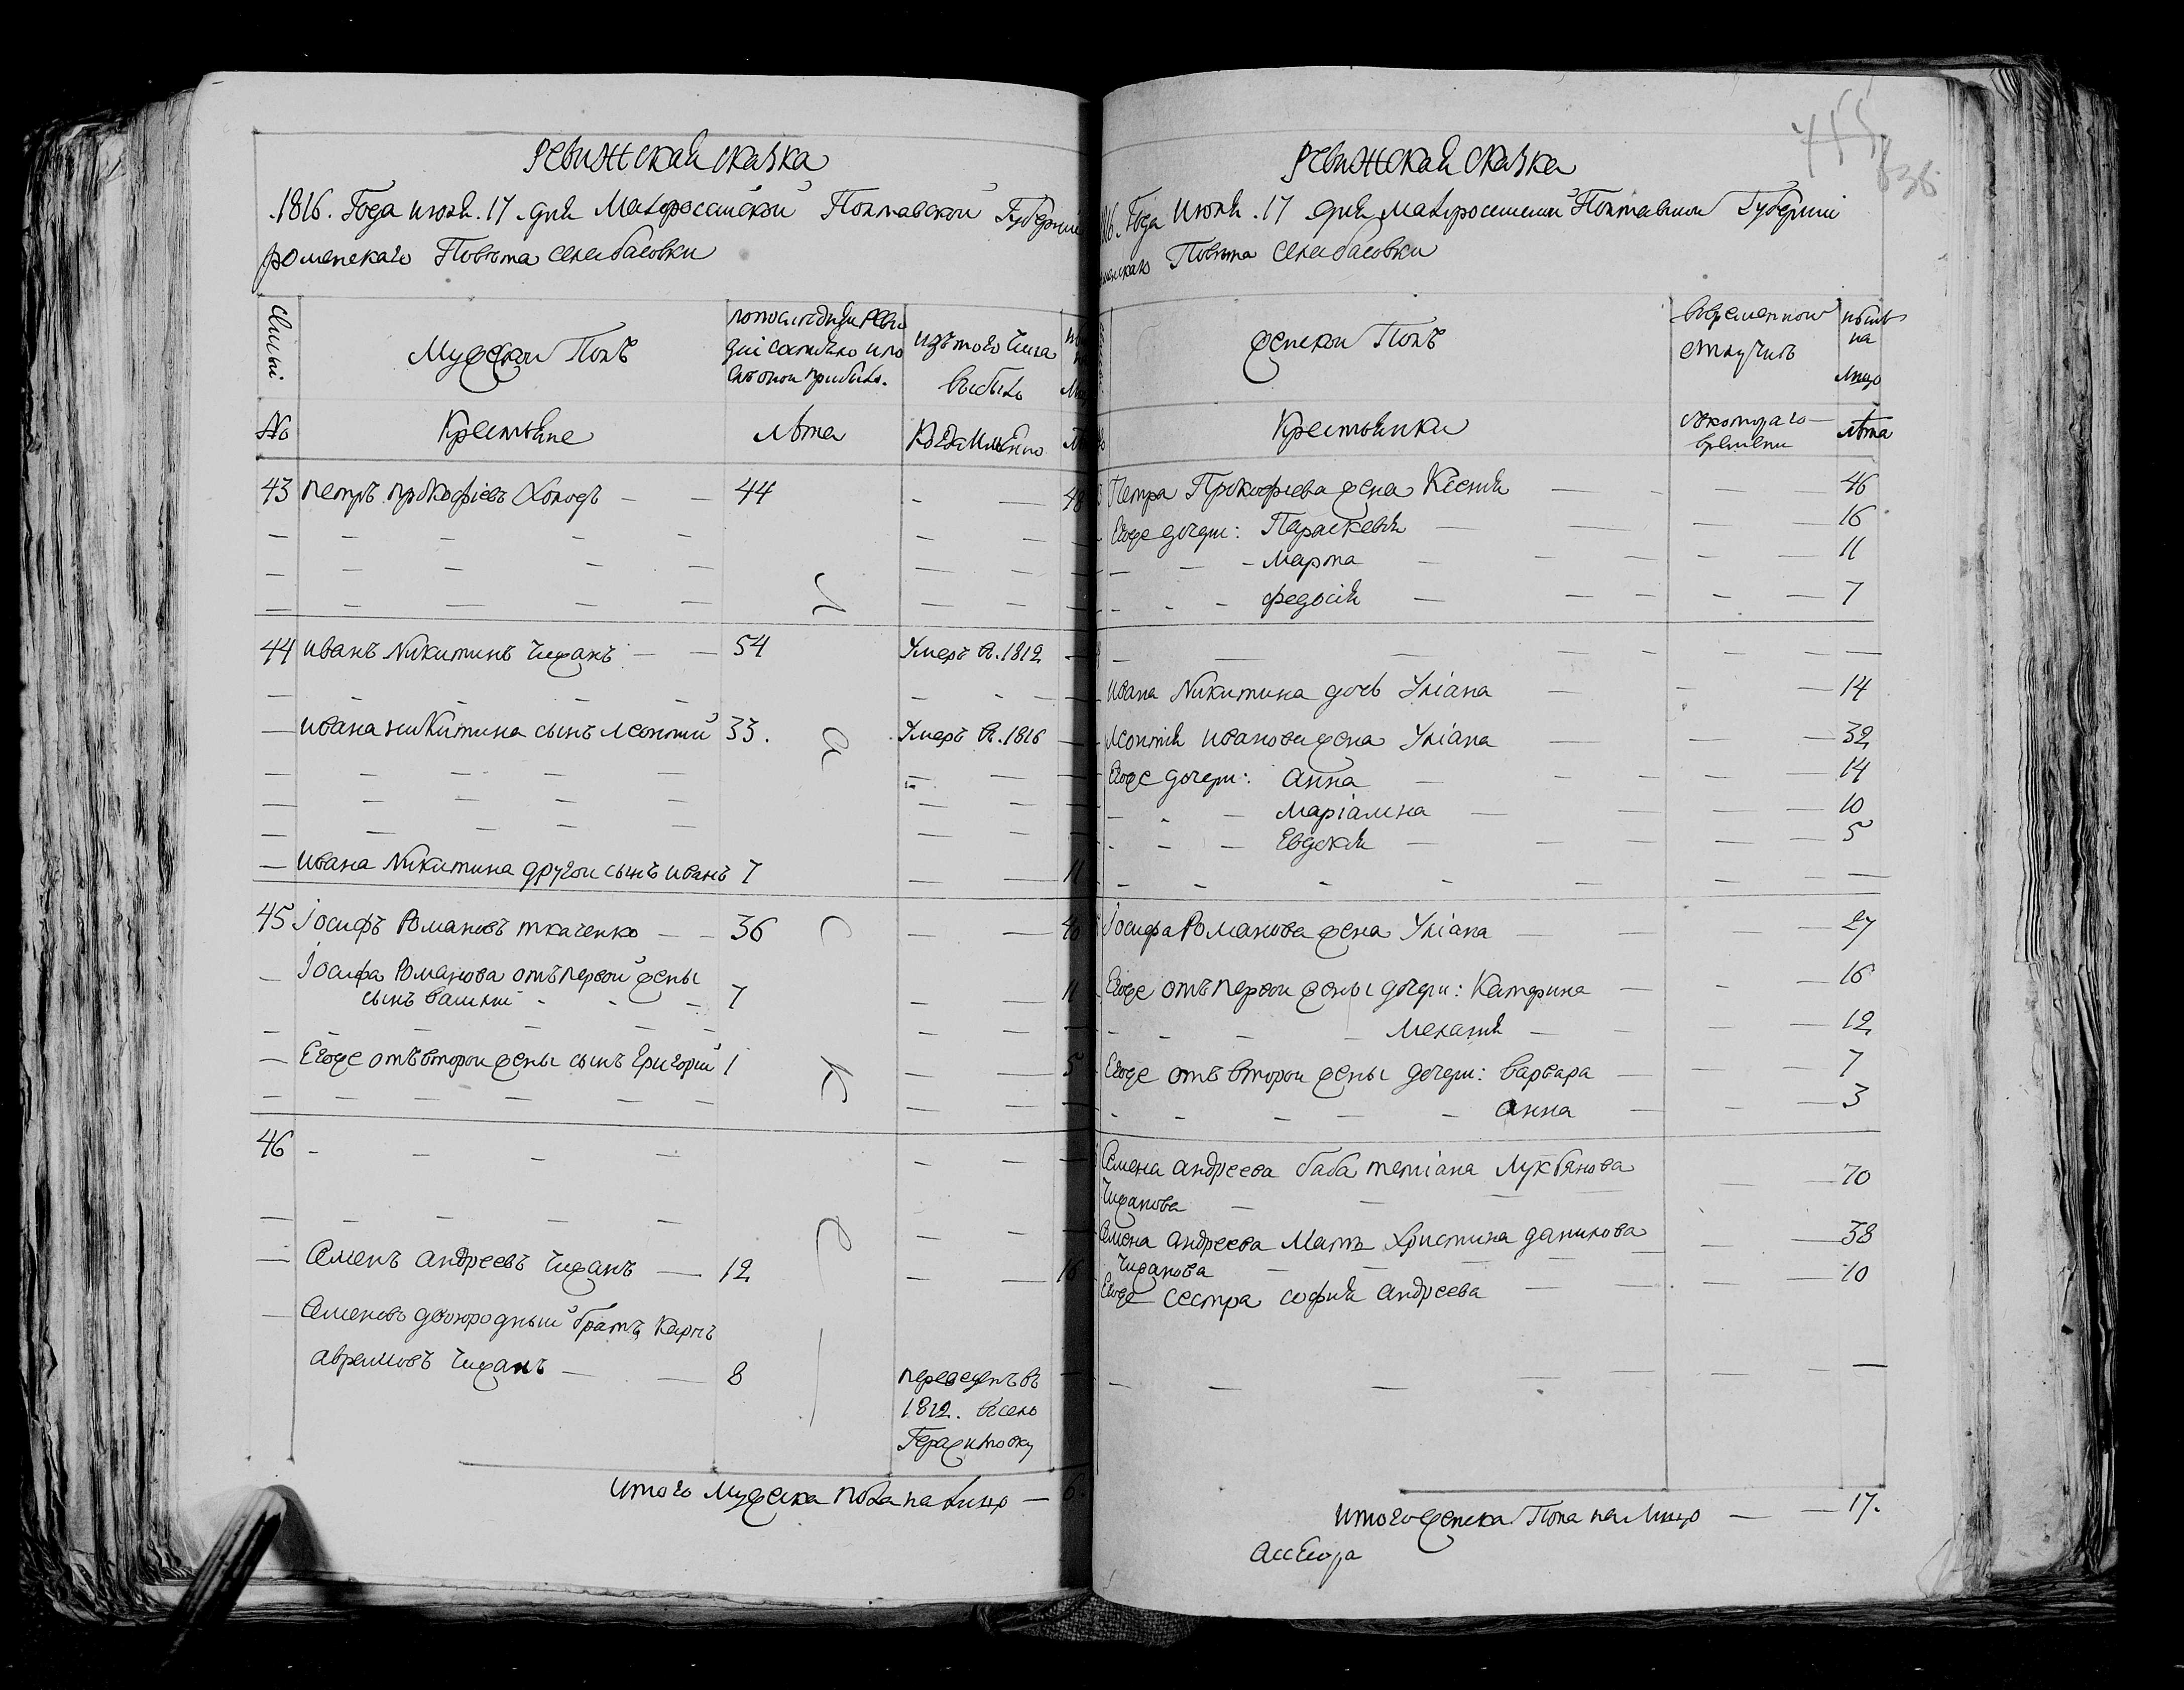 Ревижская сказка
1816. Года июля. 17. дня Малоросайской Полтавской Губернии
роменскаго Повета села басовки
Семьи
Мужеской Полъ
попоследней Реви
зіи состояло и по
слѣ оной прибыло.
изъ того числа
выбыло
№
Крестьяне
Лѣта
Когда именно
43 петръ прокофіевъ Холодъ — — 44 - — 48
44 иванъ Никитинъ Чижанъ — — 54 Умеръ в. 1812 —
— ивана никитина сынъ леонтий 33. Умеръ в. 1816 —
— ивана Никитина другои сынъ иванъ 7 — — 11
45 іосифъ Романовъ ткаченко — — 36 — — 40
— іосифа Романова отъ первой жены
сынъ василий - - - 7 — — 11
— Егоже отъ второи жены сынъ григорий 1 — — 5
46 - — — — — — —
— Семенъ андреевъ Чижанъ — 12 — — 16
— Семеновъ двоюродный братъ, карпъ
аврамовъ Чижанъ — — 8 переведенъ въ —
1812. в село
Герасимовку
итого мужеска пола на лицо — 6.
455
636
Ревижская сказка
Года июля. 17 дня Малоросийской Полтавской Губерніи
Повета села басовки
женскои Полъ
вовременной
отлучкѣ
нынѣ
на
лицо
Крестьянки
скотораго
времени
лѣта
Петра Прокофиева жена Ксения — - — 46
Егоже дочери: Параскевия — — — 16
— — - Марта — — — - — 11
- - - федосия — — — - — 7
Ивана Никитина дочь Уліана — - — 14
Леонтия иванова жена Уліана — — — 32
Егоже дочери: анна — — — — — 14
- - — Маріамна — — — — 10
- - — Евдокия — — — — 5
іосифа Романова жена Уліана — — — — 27
Егоже отъ первои жены дочери: Катерина — - — 16
- - - - Мелания — — - — 12
Егоже отъ второи жены дочери: варвара — — — 7
- - — — - анна — - — 3
Семена андреева баба тетіана Лукянова — — 70
Чижанова — — — —
Семена андреева Мать Христина данилова — — 38
Чижанова — — —
Егоже сестра софия андреева — — — — 10
итого женска Пола на лицо — — 17.